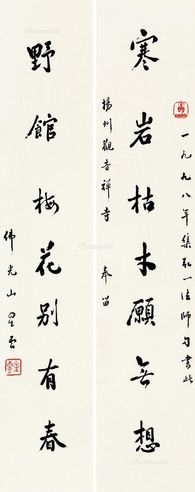 一九九八年集弘一法師句書此
寒岩枯木願無想
揚州觀音禪寺 奉留
野館梅花別有春
佛光山星雲